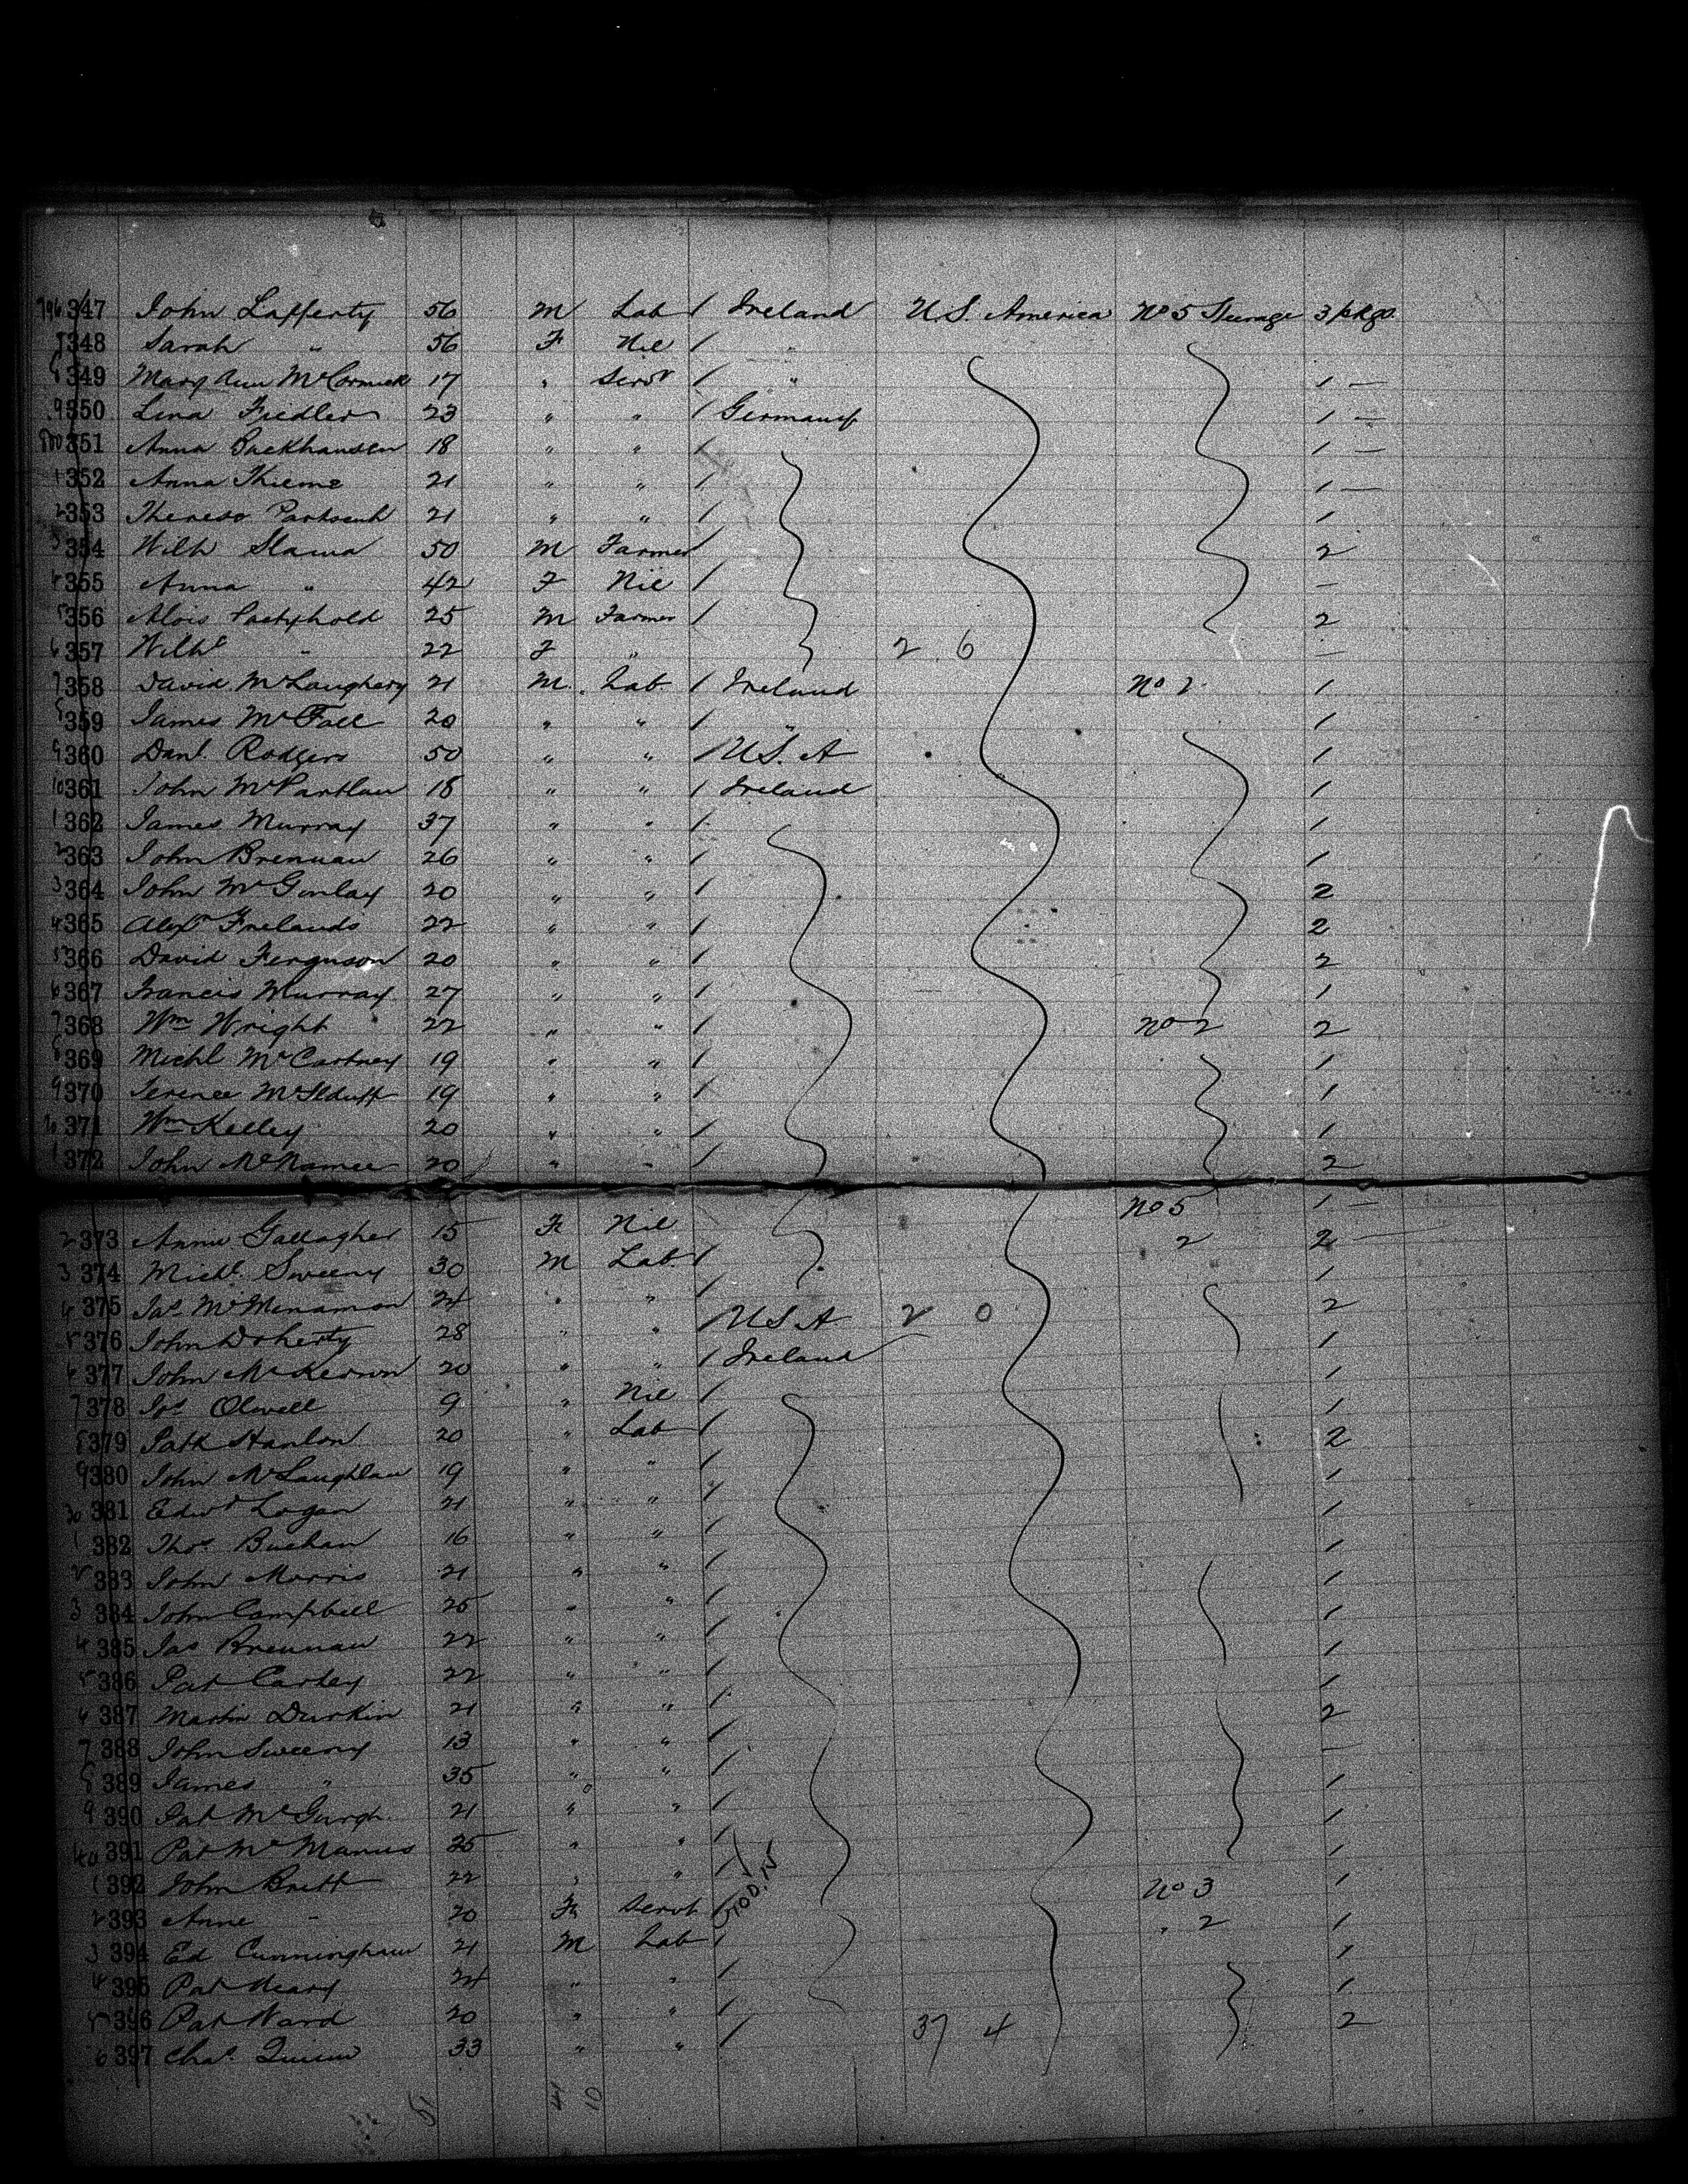 796 347 John Lafferty 56 M Lab / Ireland U.S. America No 5 Steerage 3 pkgs.
348 Sarah " 56 F Nil / "
349 Mary Ann McCormick 17 " Servt / " 1 —
9 350 Lina Fiedler 23 " " / Germany 1 —
800 351 Anna Backhausen 18 " " / 1 —
1 352 Anna Thieme 21 " " / 1 —
2 353 21 " " / 1
3 354 Wilh Slama 50 M Farmer / 2
4 355 Anna " 42 F Nil / —
5 356 Alois 25 M Farmer / 2
6 357 22 F " 2 6 —
7 358 David McLaughery 21 M. Lab. / Ireland No 2 1
8 359 James McFall 20 " " / " 1
9 360 Danl. Rodgers 50 " " / U.S. A 1
10 361 John McPartlan 18 " " / Ireland 1
1 362 James Murray 37 " " / 1
2 363 John Brennan 26 " " / 1
3 364 John McGinlay 20 " " / 2
4 365 Alexr 22 " " / 2
5 366 David Ferguson 20 " " / 2
6 367 Francis Murray 27 " " / 1
7 368 Wm Wright 22 " " / No 2 2
8 369 Michl McCartney 19 " " / 1
9 370 Terence 19 " " / 1
20 371 Wm Kelley 20 " " / 1
1 372 John McNamee 20 " " / 2
2 373 Annie Gallagher 15 F Nil No 5 1 —
3 374 Michl. Sweeny 30 M Lab. / 2 2 —
4 375 Jas. McMenamon 24 " " / 1
5 376 John Doherty 28 " " / U S A 2 0 2
6 377 John McKeown 20 " " / Ireland 1
7 378 Jos. Olwell 9 " Nil / 1
8 379 Patk Hanlon 20 " Lab / 1
9 380 John McLaughlan 19 " " / 2
30 381 Edwd Logan 21 " " / 1
1 382 Thos. Buchan 16 " " / 1
2 383 John Morris 21 " " / 1
3 384 John Campbell 25 " " / 1
4 385 Jas Brennan 22 " " / 1
5 386 Pat Carley 22 " " / 1
6 387 Martin Durkin 21 " " / 1
7 388 John Sweeny 13 " " / 2
8 389 James " 35 " " / —
9 390 Pat McGurgh 21 " " / 1
40 391 Pat McManus 25 " " / 1
1 392 John Brett 22 " " / 1
2 393 Anne " 20 F Servt / No 3 1
3 394 Ed Cunningham 21 M Lab / " 2 1
4 395 Pat Neary 24 " " / 1
5 396 Pat Ward 20 " " / 1
6 397 Chas. Quinn 33 " " / 37 4 2